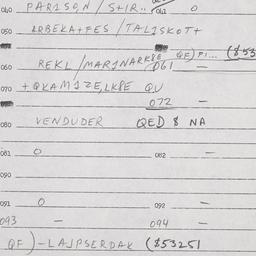 040 PARISON / S+IR.. 041 0
050 RABEKA+FES / TALISKOTT
REKL / MARJNARKBE QF) FI... ($53
060 061 —
070 + QKAMIZE,LKBE QU
072 —
080 VENDUDER QED 8 NA
081 0 082 —
090
091 0 092 —
093 — 094 —
QF) - LAJPSERDAK ($53251